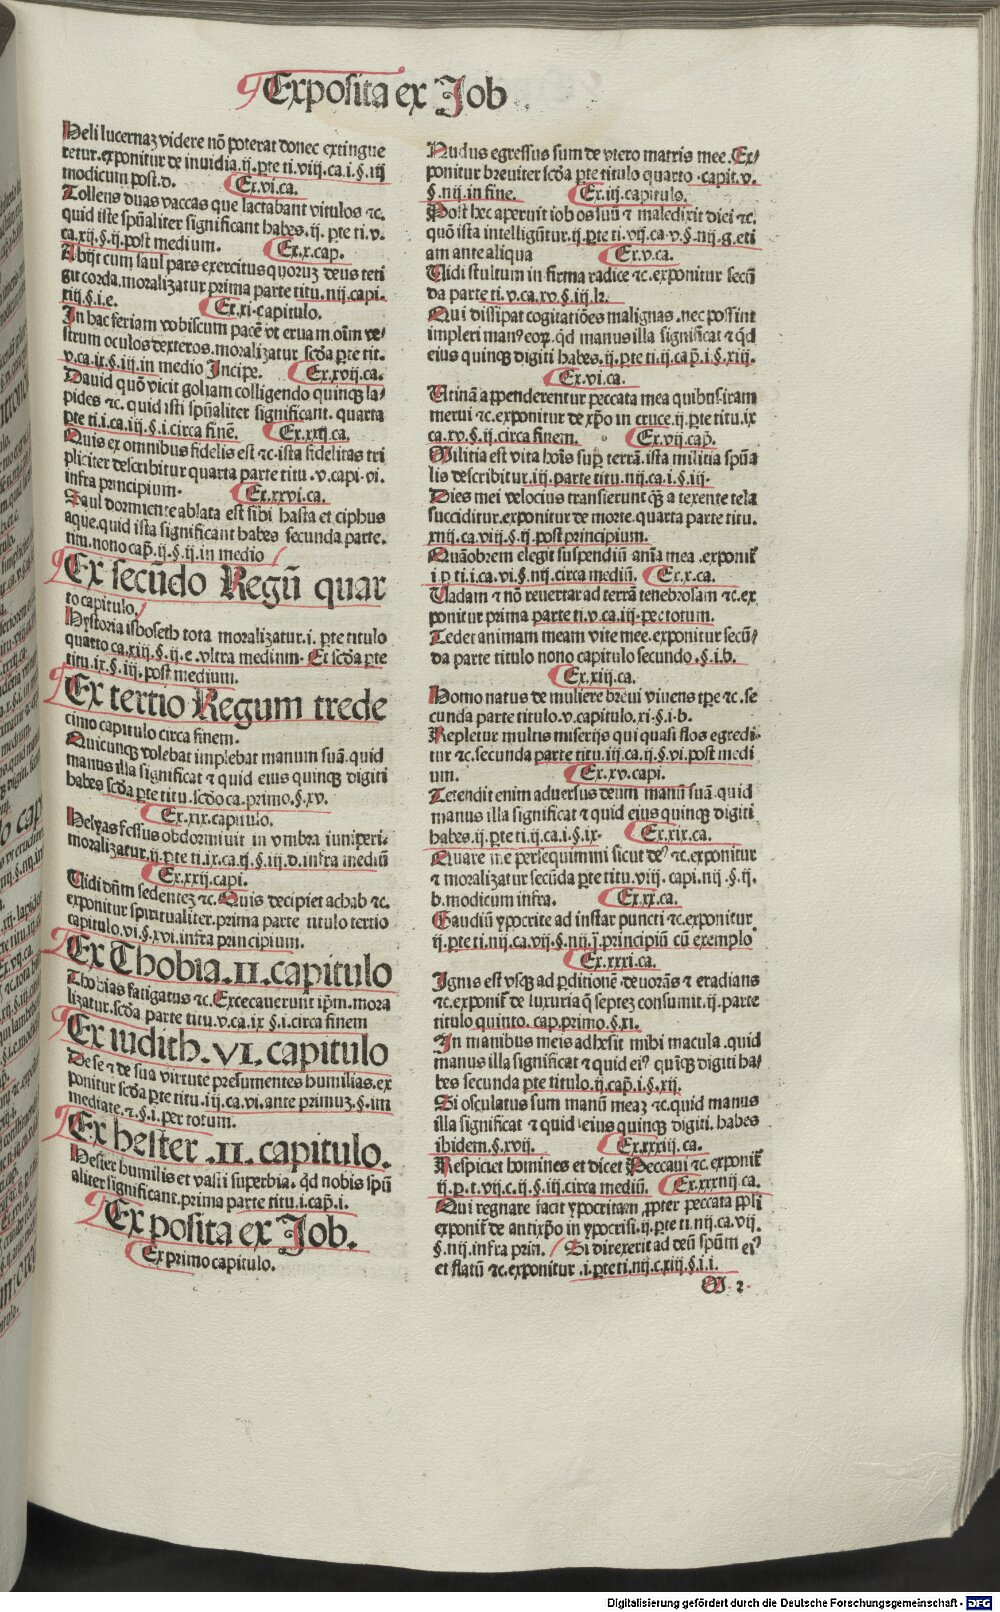 Exposita ex Job
Heli lucernaz videre nõ poterat donec extingue
retur.exponitur de inuidia.ij.pte ti.viij.ca.i.§.iij
modicum post.d. Ex.vi.ca.
Tollens duas vaccas que lactabant vitulos ⁊c.
quid iste spũaliter significant habes.ij. pte ti.v.
ca.xij.§.ij.post medium. Ex.x.cap.
Abijt cum saul pars exercitus quoruz deus teti
git corda.moralizatur prima parte titu.iiij.capi.
xiij.§.i.e. Ex.xi.capitulo.
In hac feriam vobiscum pacẽ vt eruam oĩm ve⸗
strum oculos dexteros.moralizatur scđa pte tit.
v.ca.ix.§.iij.in medio Incipe. Ex.xvij.ca.
Dauid quõ vicit goliam colligendo quinqz la⸗
pides ⁊c. quid isti spũaliter significant. quarta
pte ti.i.ca.iij.§.i.circa finẽ. Ex.xxij.ca.
Quis ex omnibus fidelis est ⁊c.ista fidelitas tri
pliciter describitur quarta parte titu.v.capi.vi.
infra principium. Ex.xxvi.ca.
Saul dormiente ablata est sibi hasta et ciphus
aque.quid ista significant habes secunda.parte.
titu.nono cap̃.ij.§.ij.in medio
Ex secũdo Regũ quar
to capitulo.
Hystoria isboseth tota moralizatur.i. pte titulo
quarto ca.xiij.§.ij.e.vltra medium. Et scđa pte
titu.ix.§.iij.post medium.
Ex tertio Regum trede
cimo capitulo circa finem.
Quicunqz volebat implebat manum suã.quid
manus illa significat ⁊ quid eius quinqz digiti
habes scđa pte titu.scđo ca.primo.§.xv.
Ex.xix.capitulo.
Helyas fessus obdormiuit in vmbra iuniperi.
moralizatur.ij.pte ti.ix.ca.ij.§.iij.d.infra mediũ
Ex.xxij.capi.
Uidi dñm sedentez ⁊c. Quis decipiet achab ⁊c.
exponitur spiritualiter.prima parte titulo tertio
capitulo.vi.§.xvi.infra principium.
Ex Thobia.II.capitulo
Thobias fatigatus ⁊c.Excecauerunt ip̃m.mora
lizatur.scđa parte titu.v.ca.ix §.i.circa finem
Ex iudith.VI.capitulo
De se ⁊ de sua virtute presumentes humilias.ex
ponitur scđa pte titu.iij.ca.vi.ante primuz.§.im
mediate.⁊.§.i.per totum.
Ex hester .II.capitulo.
Hester humilis et vasti superba. qđ nobis spũ
aliter significant.prima parte titu.i.cap̃.i.
Exposita ex Job.
Ex primo capitulo.
Nudus egressus sum de vtero matris mee.Ex⸗
ponitur breuiter scđa pte titulo quarto .capit.v.
§.iiij.in fine. Ex.iij.capitulo.
Post hec aperuit iob os suũ ⁊ maledixit diei ⁊c.
quõ ista intelligũtur.ij.pte ti.vij.ca.v.§.iiij.g.eti
am ante aliqua Ex.v.ca.
Uidi stultum in firma radice ⁊c.exponitur secũ
da parte ti.v.ca.xv.§.iij.h.
Qui dissipat cogitatiões malignas.nec possint
impleri manꝰ eoꝝ.qđ manus illa significat ⁊ qđ
eius quinqz digiti habes.ij.pte ti.ij.cap̃.i.§.xiij.
Ex.vi.ca.
Utinã appenderentur peccata mea quibus iram
merui ⁊c.exponitur de xp̃o in cruce.ij.pte titu.ix
ca.xv.§.ij.circa finem. Ex.vij.cap̃.
Militia est vita hoĩs sup terrã.ista militia spũa
lis describitur.iij.parte titu.iiij.ca.i.§.iij.
Dies mei velocius transierunt q̃z a texente tela
succiditur.exponitur de morte.quarta parte titu.
xiij.ca.viij.§.ij.post principium.
Quãobrem elegit suspendiũ anĩa mea .exponit̃
i p ti.i.ca.vi.§.iiij.circa mediũ. Ex.x.ca.
Uadam ⁊ nõ reuertar ad terrã tenebrosam ⁊c.ex
ponitur prima parte ti.v.ca.iij.per totum.
Tedet animam meam vite mee.exponitur secũ⸗
da parte titulo nono capitulo secundo.§.i.b.
Ex.xiij.ca.
Homo natus de muliere breui viuens tp̃e ⁊c.se
cunda parte titulo.v.capitulo.xi.§.i.b.
Repletur multis miserijs qui quasi flos egredi⸗
tur ⁊c.secunda parte titu.iij.ca.ij.§.vi.post medi
um. Ex.xv.capi.
Tetendit enim aduersus deum manũ suã.quid
manus illa significat ⁊ quid eius quinqz digiti
habes.ij.pte ti.ij.ca.i.§.ix. Ex.xix.ca.
Quare me persequimini sicut deꝰ ⁊c.exponitur
⁊ moralizatur secũda pte titu.viij. capi.iiij.§.ij.
b.modicum infra. Ex.xx.ca.
Gaudiũ ypocrite ad instar puncti ⁊c.exponitur
ij.pte ti.iiij.ca.vij.§.iiij.j̃.principiũ cũ exemplo
Ex.xxxi.ca.
Ignis est vsqz ad pditionẽ deuorãs ⁊ eradians
⁊c.exponit̃ de luxuria q̃ septez consumit.ij.parte
titulo quinto. cap.primo.§.xi.
In manibus meis adhesit mihi macula.quid
manus illa significat ⁊ quid eiꝰ quĩqz digiti ha⸗
bes secunda pte titulo.ij.cap̃.i.§.xij.
Si osculatus sum manũ meaz ⁊c.quid manus
illa significat ⁊ quid eius quinqz digiti. habes
ibidem.§.xvij. Ex.xxxiij.ca.
Respiciet homines et dicet Peccaui ⁊c.exponit̃
ij.p.t.vij.c.ij.§.iij.circa mediũ. Ex.xxxiiij.ca.
Qui regnare facit ypocritam ppter peccata ppli
exponit̃ de antixp̃o in ypocrisi.ij.pte ti.iiij.ca.vij.
§.iiij.infra prin. Si direxerit ad deũ spũm eiꝰ
et flatũ ⁊c.exponitur .i.pte ti.iiij.c.xiij.§.i.i.
M 2
Digitalisierung gefördert durch die Deutsche Forschungsgemeinschaft - DFG